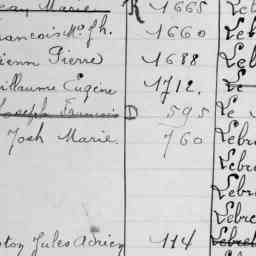 Jean Marie R 1665 Leb
rancois M. Jh. 1660 Leb
ienn Pierre 1688 Leb
uillaume Eugène 1712. Le
Joseph Francois D 595 Le
Josh Marie. 760 Lebre
Lebre
Lebre
Lebre
ston Jules Adrien 114 Lebret